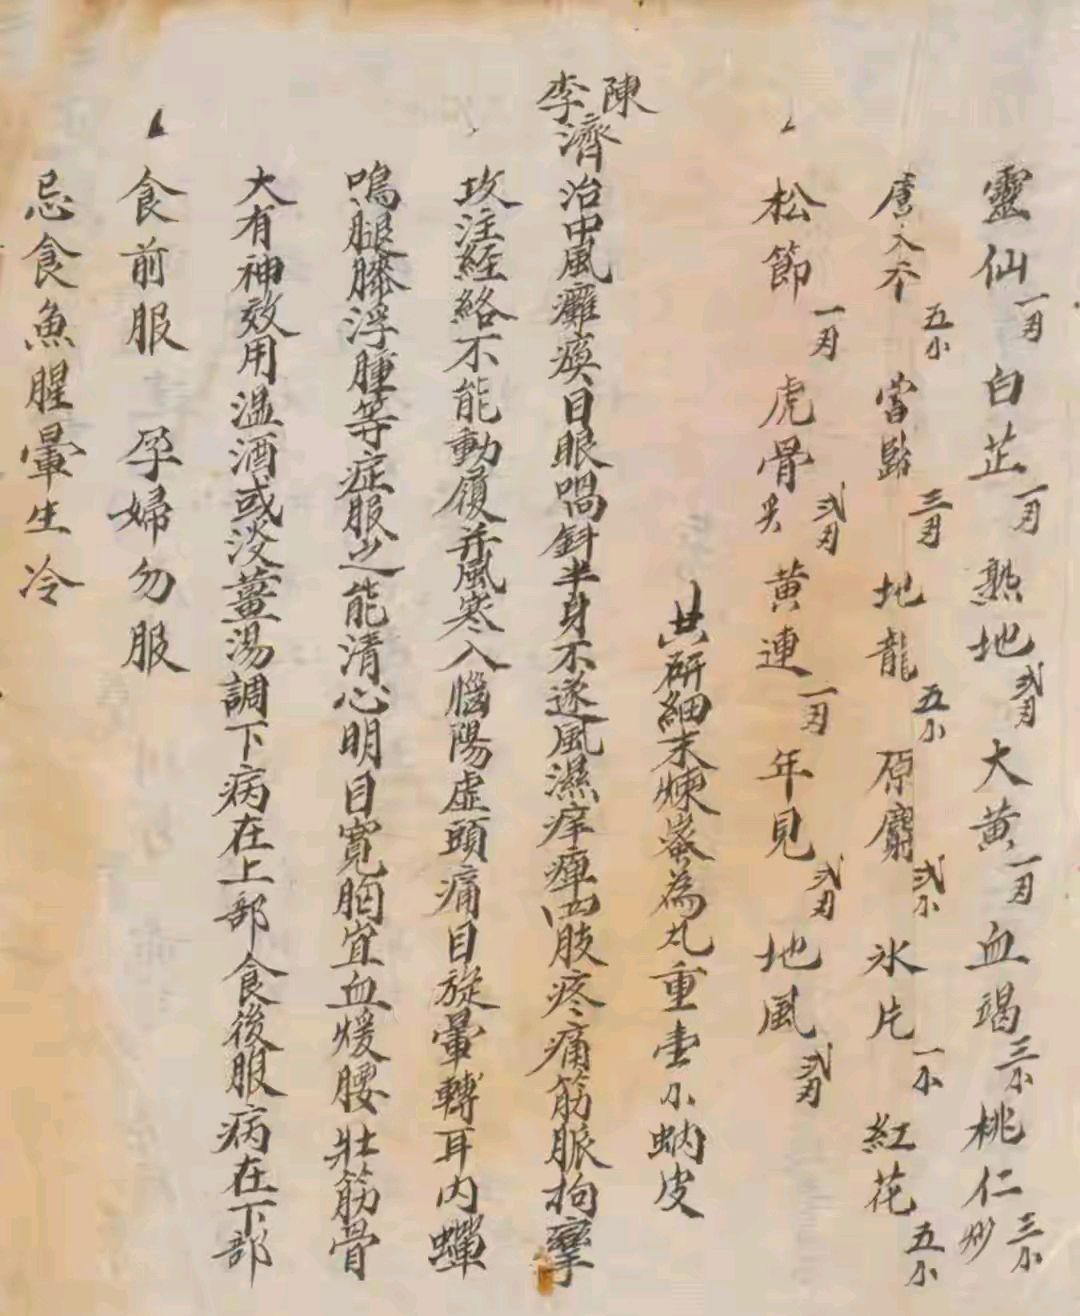 靈仙一刄白芷一刄熟地弍刄大黄一刄血竭三小桃仁炒三小
五小當歸三刄地龍五小原麝弍小氷片一小紅花五小
松節一刄虎骨弍刄黄連一刄年見弍刄地風弍刄
共研細末煉蜜為丸重壹小蚋皮
陳李濟治中風癱瘓目眼喎斜半身不遂風濕痒痺四肢疼痛筋脈拘攣
攻注經絡不能動履并風寒入腦陽虛頭痛目旋暈轉耳内蟬
鳴腿膝浮腫等症服之能清心明目寛胸宜血煖腰壯筋骨
大有神效用温酒或淡薑湯調下病在上部食後服病在下部
食前服 孕婦勿服
忌食魚腥暈生冷